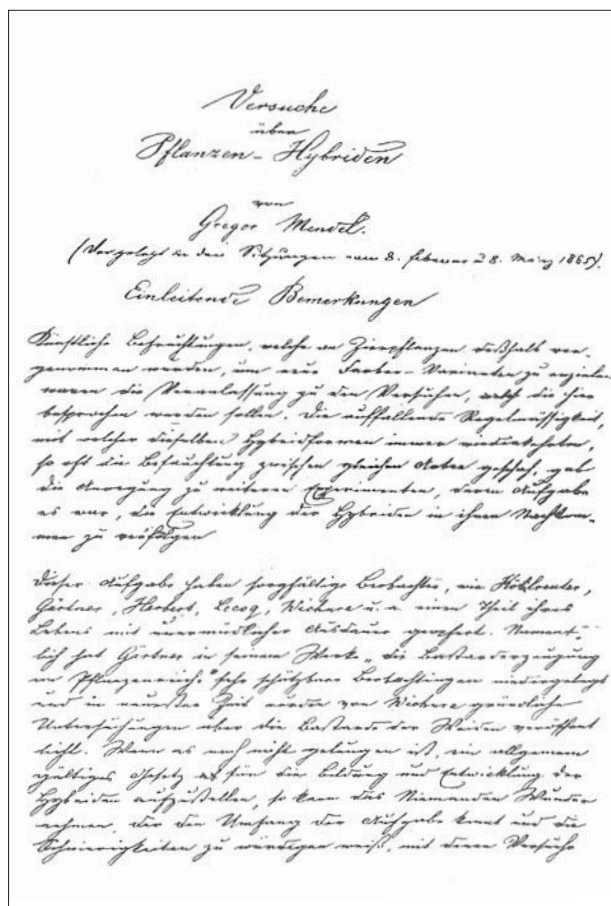 Versuche
über
Pflanzen-Hybriden
von
Gregor Mendel.
(Vorgelegt in den Sitzungen vom 8. Februar u 8. März 1865).
Einleitende Bemerkungen
Künstliche Befruchtungen, welche an Zierpflanzen deßhalb vor-
genommen wurden, um neue Farben-Varianten zu erzielen
waren die Veranlassung zu den Versuchen, die hier
besprochen werden sollen. Die auffallende Regelmässigkeit,
mit welcher dieselben Hybridformen immer wiederkehrten,
so oft die Befruchtung zwischen gleichen Arten geschah, gab
die Anregung zu weiteren Experimenten, deren Aufgabe
es war, die Entwicklung der Hybriden in ihren Nachkom-
men zu verfolgen
Dieser Aufgabe haben sorgfältige Beobachter, wie Kölreuter,
Gärtner, Herbert, Lecoq, Wichura u. a. einen Theil ihres
Lebens mit unermüdlicher Ausdauer geopfert. Nament-
lich hat Gärtner in seinem Werke "die Bastarderzeugung
im Pflanzenreiche" sehr schätzbare Beobachtungen niedergelegt
und in neuester Zeit wurden von Wichura gründliche
Untersuchungen über die Bastarde der Weiden veröffent
licht. Wenn es noch nicht gelungen ist, ein allgemein
gültiges Gesetz für die Bildung und Entwicklung der
Hybriden aufzustellen, so kann das Niemanden Wunder
nehmen, der den Umfang der Aufgabe kennt und die
Schwierigkeiten zu würdigen weiß, mit denen Versuche